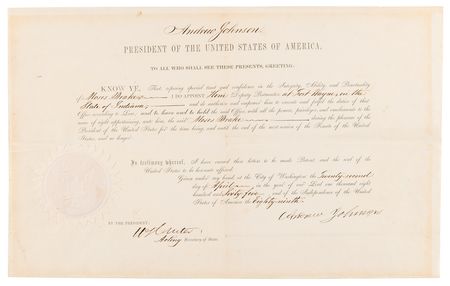 Andrew Johnson,
PRESIDENT OF THE UNITED STATES OF AMERICA,
TO ALL WHO SHALL SEE THESE PRESENTS, GREETING:
KNOW YE, That reposing special trust and confidence in the Integrity, Ability and Punctuality
of Moses Drake, I DO APPOINT Him Deputy Postmaster at Fort Wayne, in the
State of Indiana, and do authorize and empower him to execute and fulfil the duties of that
Office according to Law; and to have and to hold the said Office, with all the powers, privileges, and emoluments to the
same of right appertaining, unto him, the said Moses Drake during the pleasure of the
President of the United States for the time being, and until the end of the next session of the Senate of the United
States, and no longer.
In testimony whereof, I have caused these letters to be made Patent and the seal of the
United States to be hereunto affixed.
Given under my hand at the City of Washington the Twenty second
day of April, in the year of our Lord one thousand eight
hundred and Sixty five and of the Independence of the United
States of America the Eighty ninth.
Andrew Johnson
BY THE PRESIDENT:
W Hunter
Acting Secretary of State.